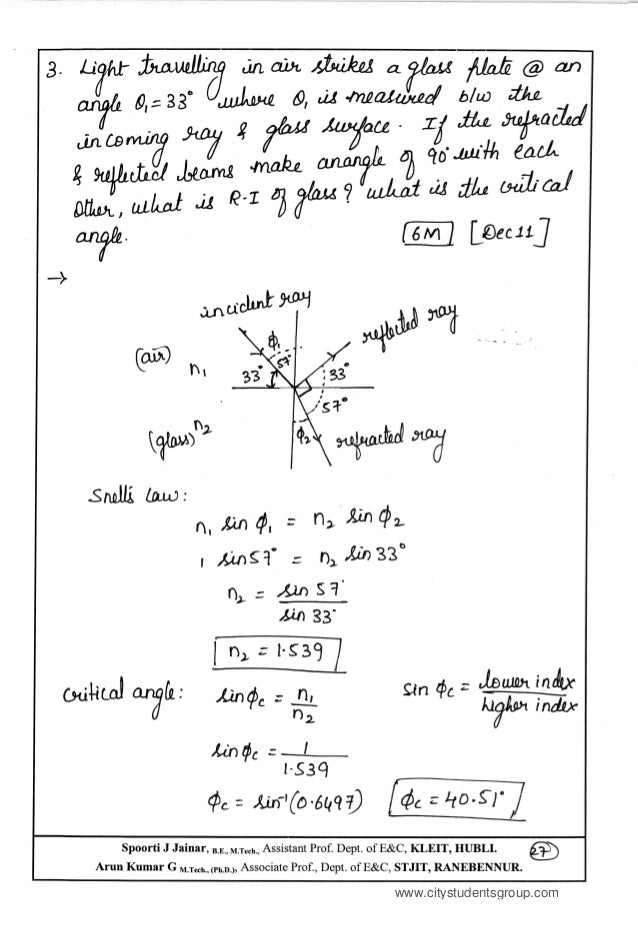 3. Light travelling in air strikes a glass plate @ an
angle θ₁ = 33° where θ₁ is measured b/w the
incoming ray & glass surface. If the refracted
& reflected beams make anangle of 90° with each
Other, what is R-I of glass? what is the critical
angle. [6M] [Dec 11]
→
incident ray
reflected ray
ϕ₁
(air) n₁
57°
33° 33°
57°
(glass) n₂
ϕ₂ refracted ray
Snell's Law:
n₁ sin ϕ₁ = n₂ sin ϕ₂
1 sin 57° = n₂ sin 33°
n₂ = sin 57°
sin 33°
n₂ = 1.539
critical angle: sin ϕc = n₁ sin ϕc = lower index
n₂ higher index
sin ϕc = 1
1.539
ϕc = sin⁻¹(0.6497) ϕc = 40.51°
Spoorti J Jainar, B.E., M.Tech., Assistant Prof. Dept. of E&C, KLEIT, HUBLI. 27
Arun Kumar G M.Tech., (Ph.D.), Associate Prof., Dept. of E&C, STJIT, RANEBENNUR.
www.citystudentsgroup.com